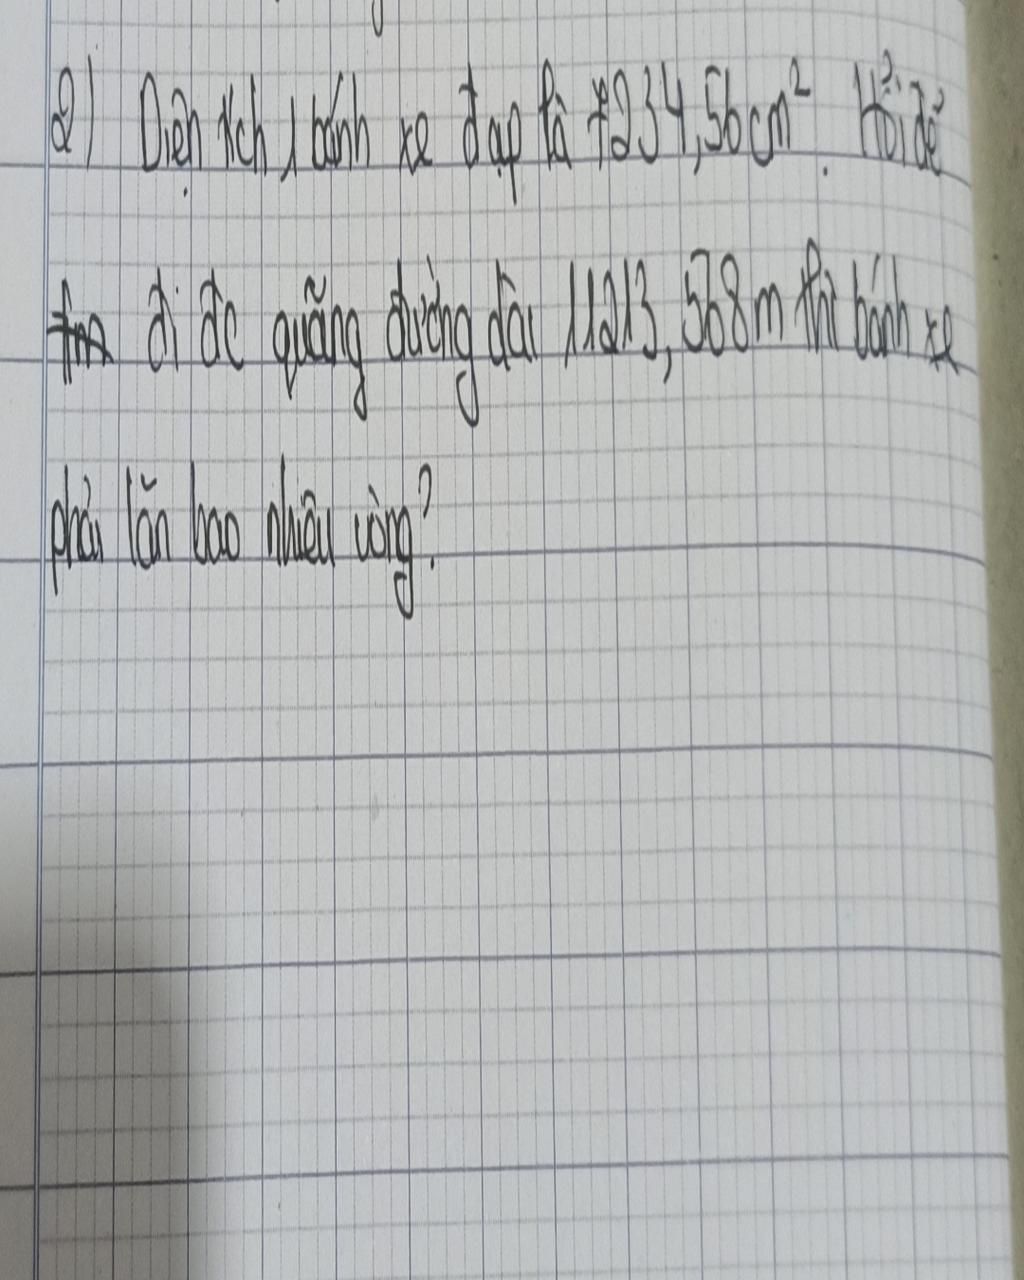 2) Diện tích 1 bánh xe đạp là 7234,56cm². Hỏi để
đi đc quãng đường dài 11213,568m thì bánh xe
phải lăn bao nhiêu vòng?